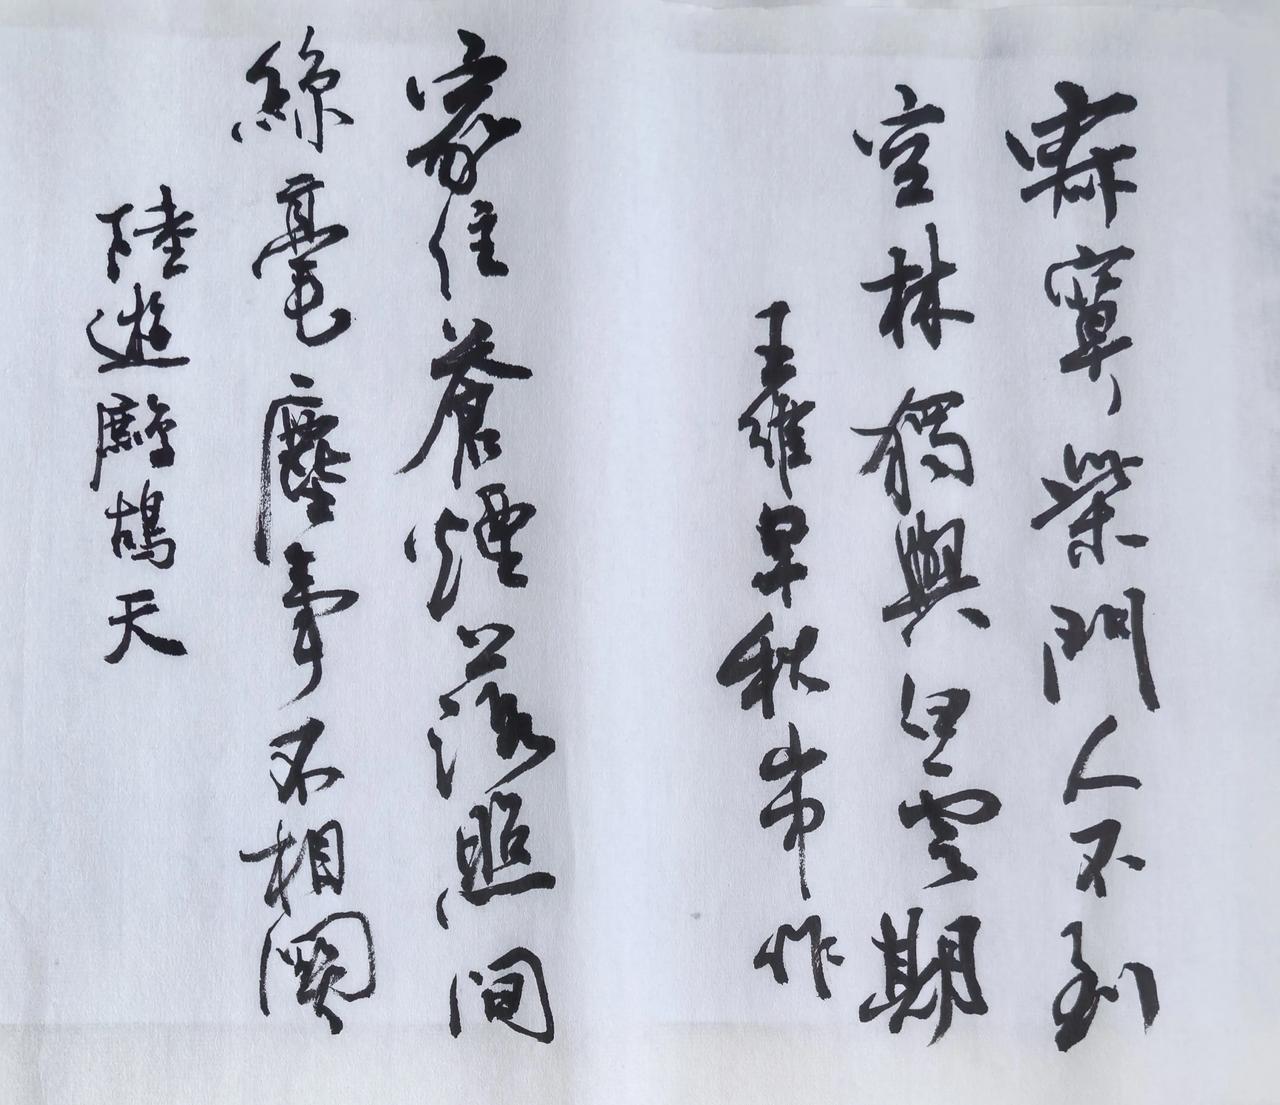 寂寞柴門人不到
空林獨與白雲期
王維早秋山中作
家住蒼煙落照間
絲毫塵事不相關
陸遊鷓鴣天